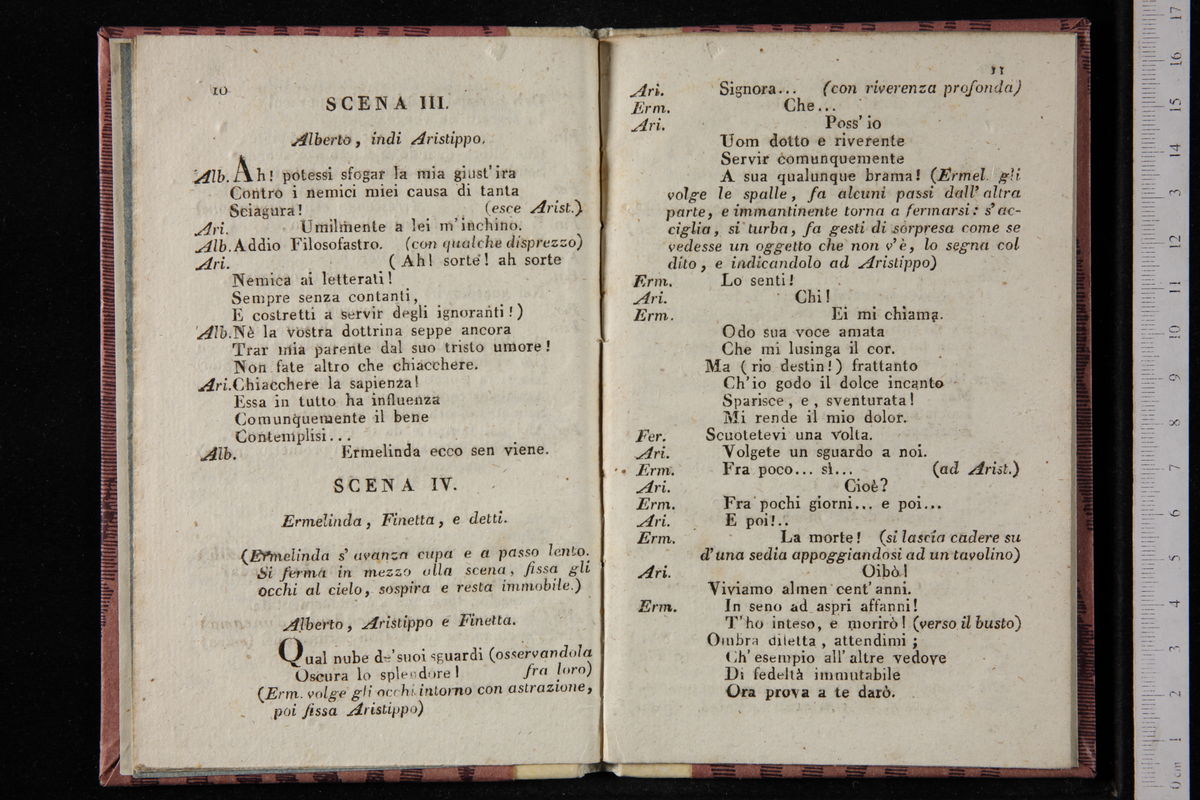 10
SCENA III.
Alberto, indi Aristippo.
Alb. Ah! potessi sfogar la mia giust'ira
Contro i nemici miei causa di tanta
Sciagura! (esce Arist.)
Ari. Umilmente a lei m'inchino.
Alb. Addio Filosofastro. (con qualche disprezzo)
Ari. (Ah! sorte! ah sorte
Nemica ai letterati!
Sempre senza contanti,
E costretti a servir degli ignoranti!)
Alb. Nè la vostra dottrina seppe ancora
Trar mia parente dal suo tristo umore!
Non fate altro che chiacchere.
Ari. Chiacchere la sapienza!
Essa in tutto ha influenza
Comunquemente il bene
Contemplisi...
Alb. Ermelinda ecco sen viene.
SCENA IV.
Ermelinda, Finetta, e detti.
(Ermelinda s'avanza cupa e a passo lento.
Si ferma in mezzo alla scena, fissa gli
occhi al cielo, sospira e resta immobile.)
Alberto, Aristippo e Finetta.
Qual nube de'suoi sguardi (osservandola
Oscura lo splendore! fra loro)
(Erm. volge gli occhi intorno con astrazione,
poi fissa Aristippo)
11
Ari. Signora... (con riverenza profonda)
Erm. Che...
Ari. Poss'io
Uom dotto e riverente
Servir comunquemente
A sua qualunque brama! (Ermel. gli
volge le spalle, fa alcuni passi dall'altra
parte, e immantinente torna a fermarsi: s'ac-
ciglia, si turba, fa gesti di sorpresa come se
vedesse un oggetto che non v'è, lo segna col
dito, e indicandolo ad Aristippo)
Erm. Lo senti!
Ari. Chi!
Erm. Ei mi chiama.
Odo sua voce amata
Che mi lusinga il cor.
Ma (rio destin!) frattanto
Ch'io godo il dolce incanto
Sparisce, e, sventurata!
Mi rende il mio dolor.
Fer. Scuotetevi una volta.
Ari. Volgete un sguardo a noi.
Erm. Fra poco... sì... (ad Arist.)
Ari. Cioè?
Erm. Fra pochi giorni... e poi...
Ari. E poi!..
Erm. La morte! (si lascia cadere su
d'una sedia appoggiandosi ad un tavolino)
Ari. Oibò!
Viviamo almen cent'anni.
Erm. In seno ad aspri affanni!
T'ho inteso, e morirò! (verso il busto)
Ombra diletta, attendimi;
Ch'esempio all'altre vedove
Di fedeltà immutabile
Ora prova a te darò.
0 cm 1 2 3 4 5 6 7 8 9 10 11 12 13 14 15 16 17